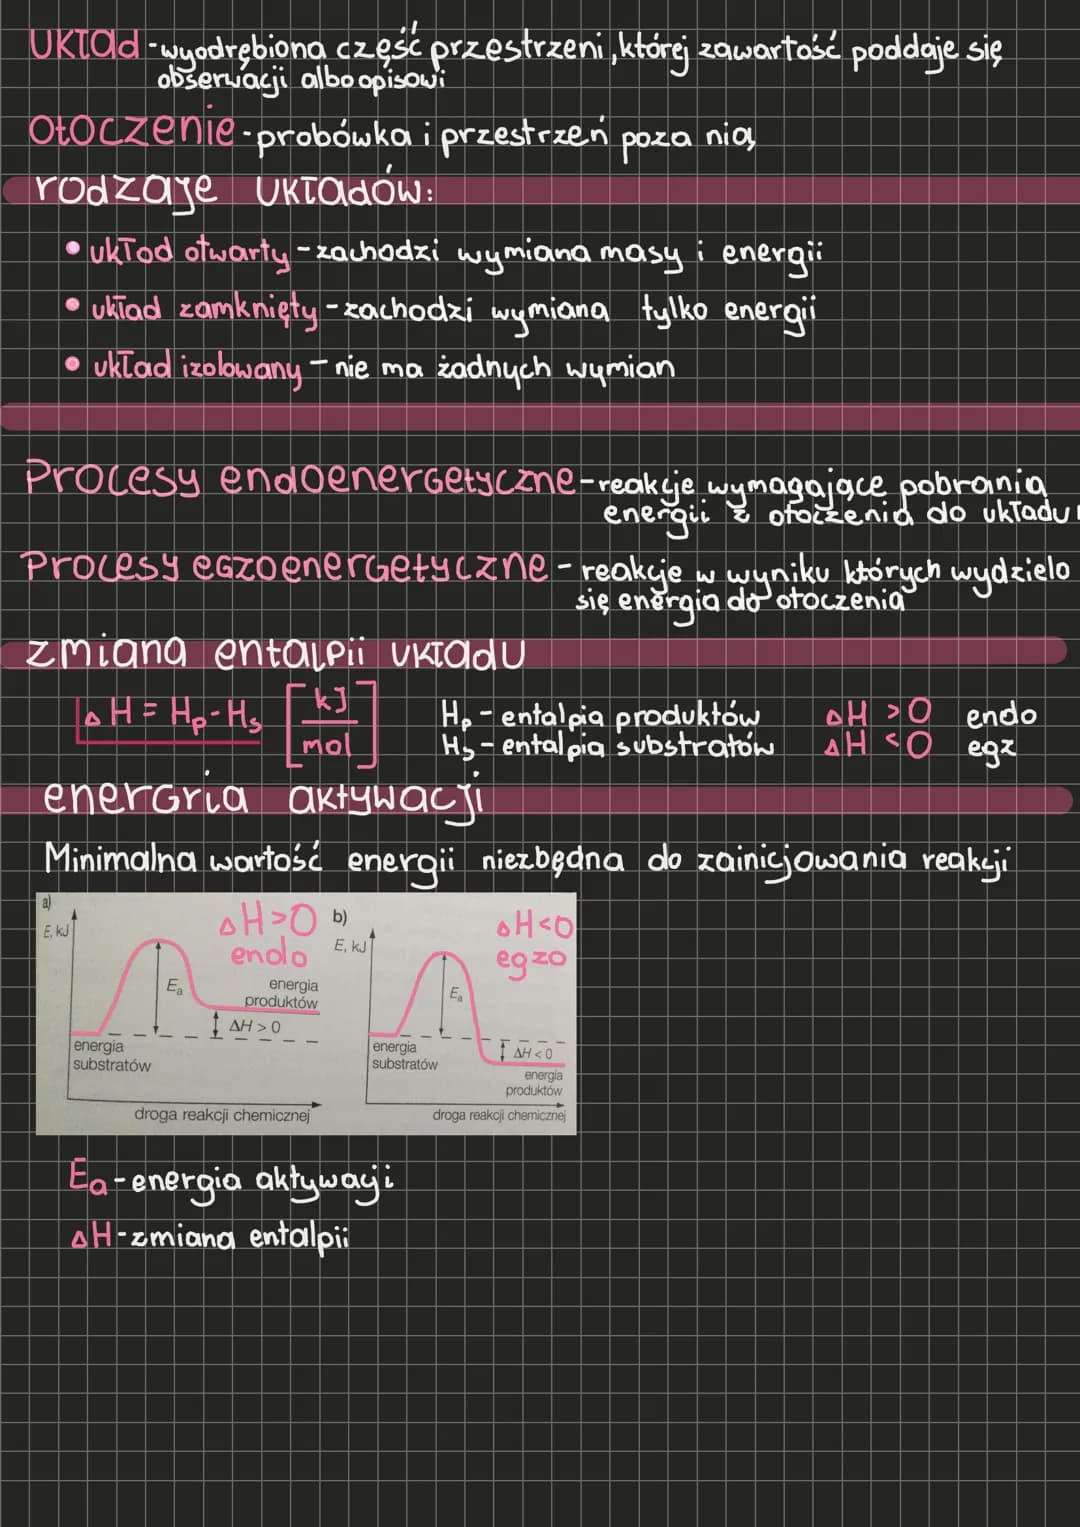 Układ - wyodrębiona część przestrzeni, której zawartość poddaje się
obserwacji albo opisowi
Otoczenie - probówka i przestrzeń poza nią
rodzaje układów:
• układ otwarty - zachodzi wymiana masy i energii
• układ zamknięty - zachodzi wymiana tylko energii
• układ izolowany - nie ma żadnych wymian
Procesy endoenergetyczne - reakcje wymagające pobrania
energii z otoczenia do układu
Procesy egzoenergetyczne - reakcje w wyniku których wydziela
się energia do otoczenia
zmiana entalpii układu
ΔH = Hp - Hs [kJ/mol]
Hp - entalpia produktów ΔH > 0 endo
Hs - entalpia substratów ΔH < 0 egz
energia aktywacji
Minimalna wartość energii niezbędna do zainicjowania reakcji
a)
E, kJ
ΔH>0
endo
Ea
energia
produktów
ΔH > 0
energia
substratów
droga reakcji chemicznej
b)
E, kJ
ΔH<0
egzo
Ea
energia
substratów
ΔH < 0
energia
produktów
droga reakcji chemicznej
Ea - energia aktywacji
ΔH - zmiana entalpii